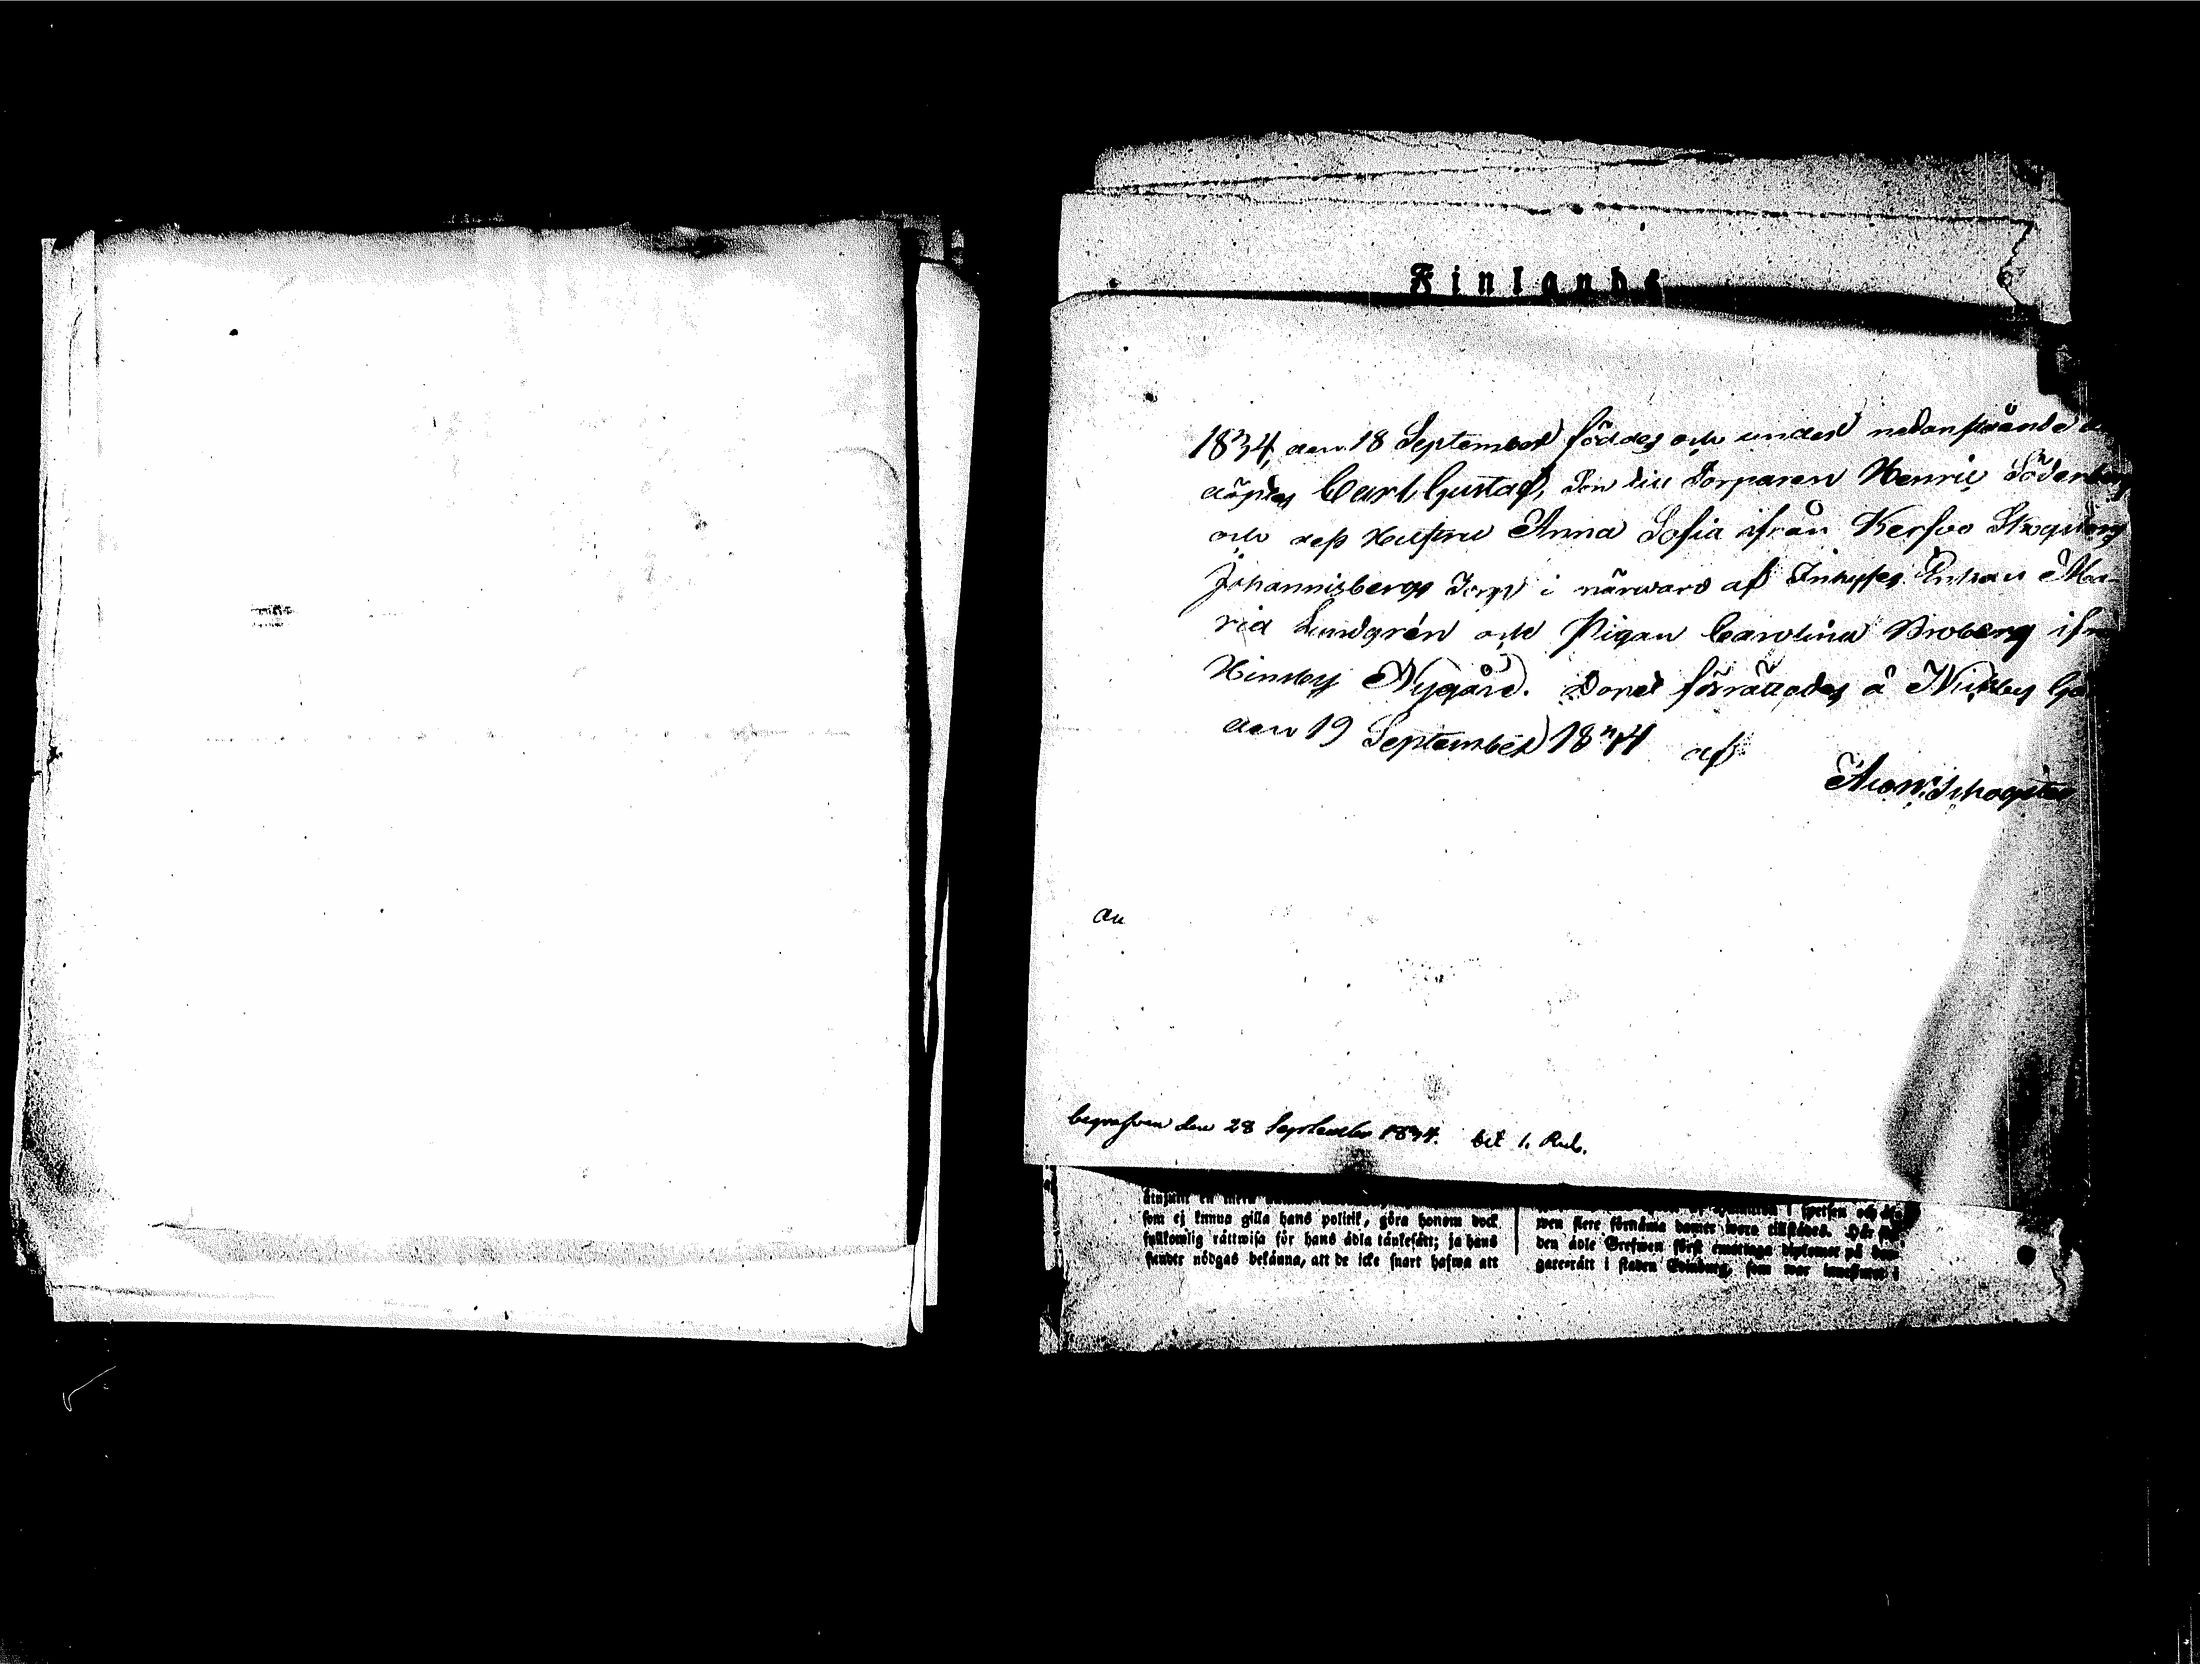 Finlands
1834, den 18 September föddes och under nedanstående
döptes Carl Gustaf, Son till Torparen Henric Söderberg
och dess Hustru Anna Sofia ifrån Kerfvo Skogsberg
Johannisbergs Torp i närvaro af Enkan Ma-
ria Lundgrén och Pigan Carolina Broberg ifr
Hindsby Nygård. Dopet förrättades å Nickby
den 19 September 1834 af
au
begrafven den 28 September 1834. bet 1. Rub.
som ej kunna gilla hans politik, göra honom dock
fullkomlig rättwisa för hans ädla tänkesätt; ja hans
fiender nödgas bekänna, att de icke snart hafwa att
i spetsen och äf-
wen flere förnäma damer woro tillstädes. Här
den ädle Grefwen först emottaga diplomet på
garerätt i staden Edinburg, som war